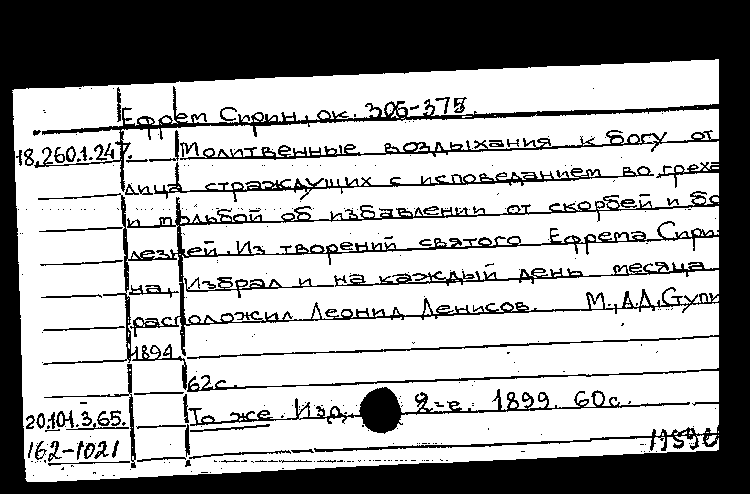 Ефрем Сирин, ок. 306-373.
18.260.1.247. Молитвенные воздыхания к богу от
лица страждущих с исповеданием во греха
и мольбой об избавлении от скорбей и бо
лезней. Из творений святого Ефрема Сири
на. Избрал и на каждый день месяца
расположил Леонид Денисов. М., А.Д. Ступи
1894.
62с.
20.101.3.65. То же. Изд. 2-е. 1899. 60с.
162-1021